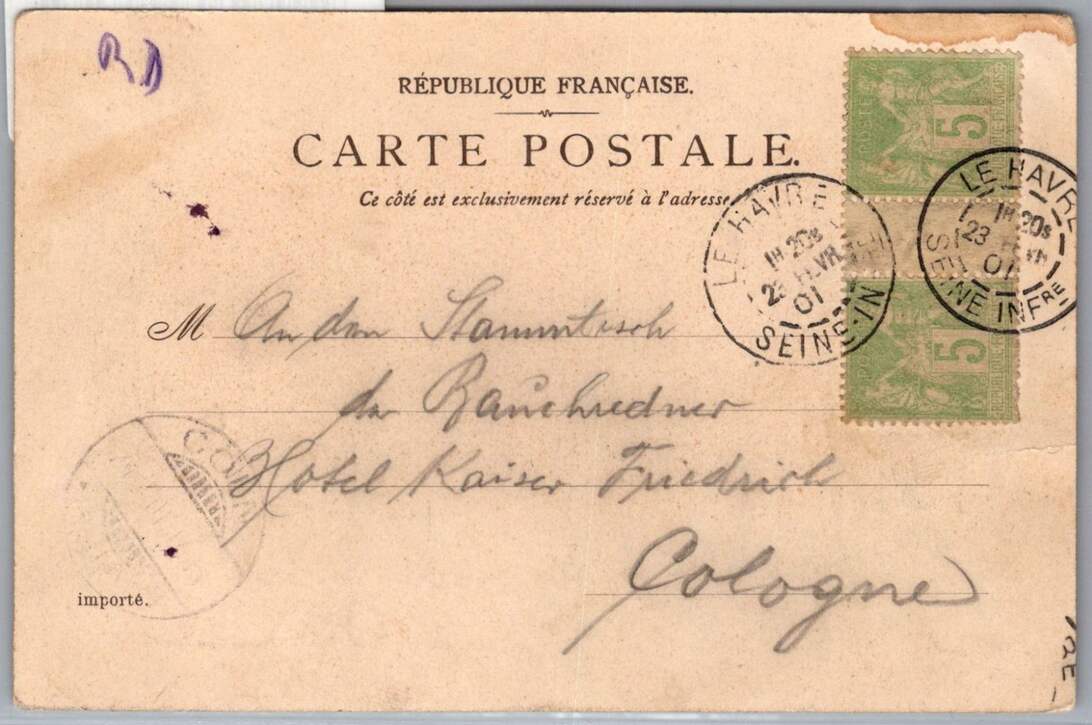 RÉPUBLIQUE FRANÇAISE.
CARTE POSTALE.
Ce côté est exclusivement réservé à l'adresse
5
LE HAVRE
1H 20s
23 FEVR
01
SEINE-IN
LE HAVRE
1H 20s
23
01
SEINE INFRE
5
M An den Stammtisch
der
Hotel Kaiser Friedrich
Cologne
importé.